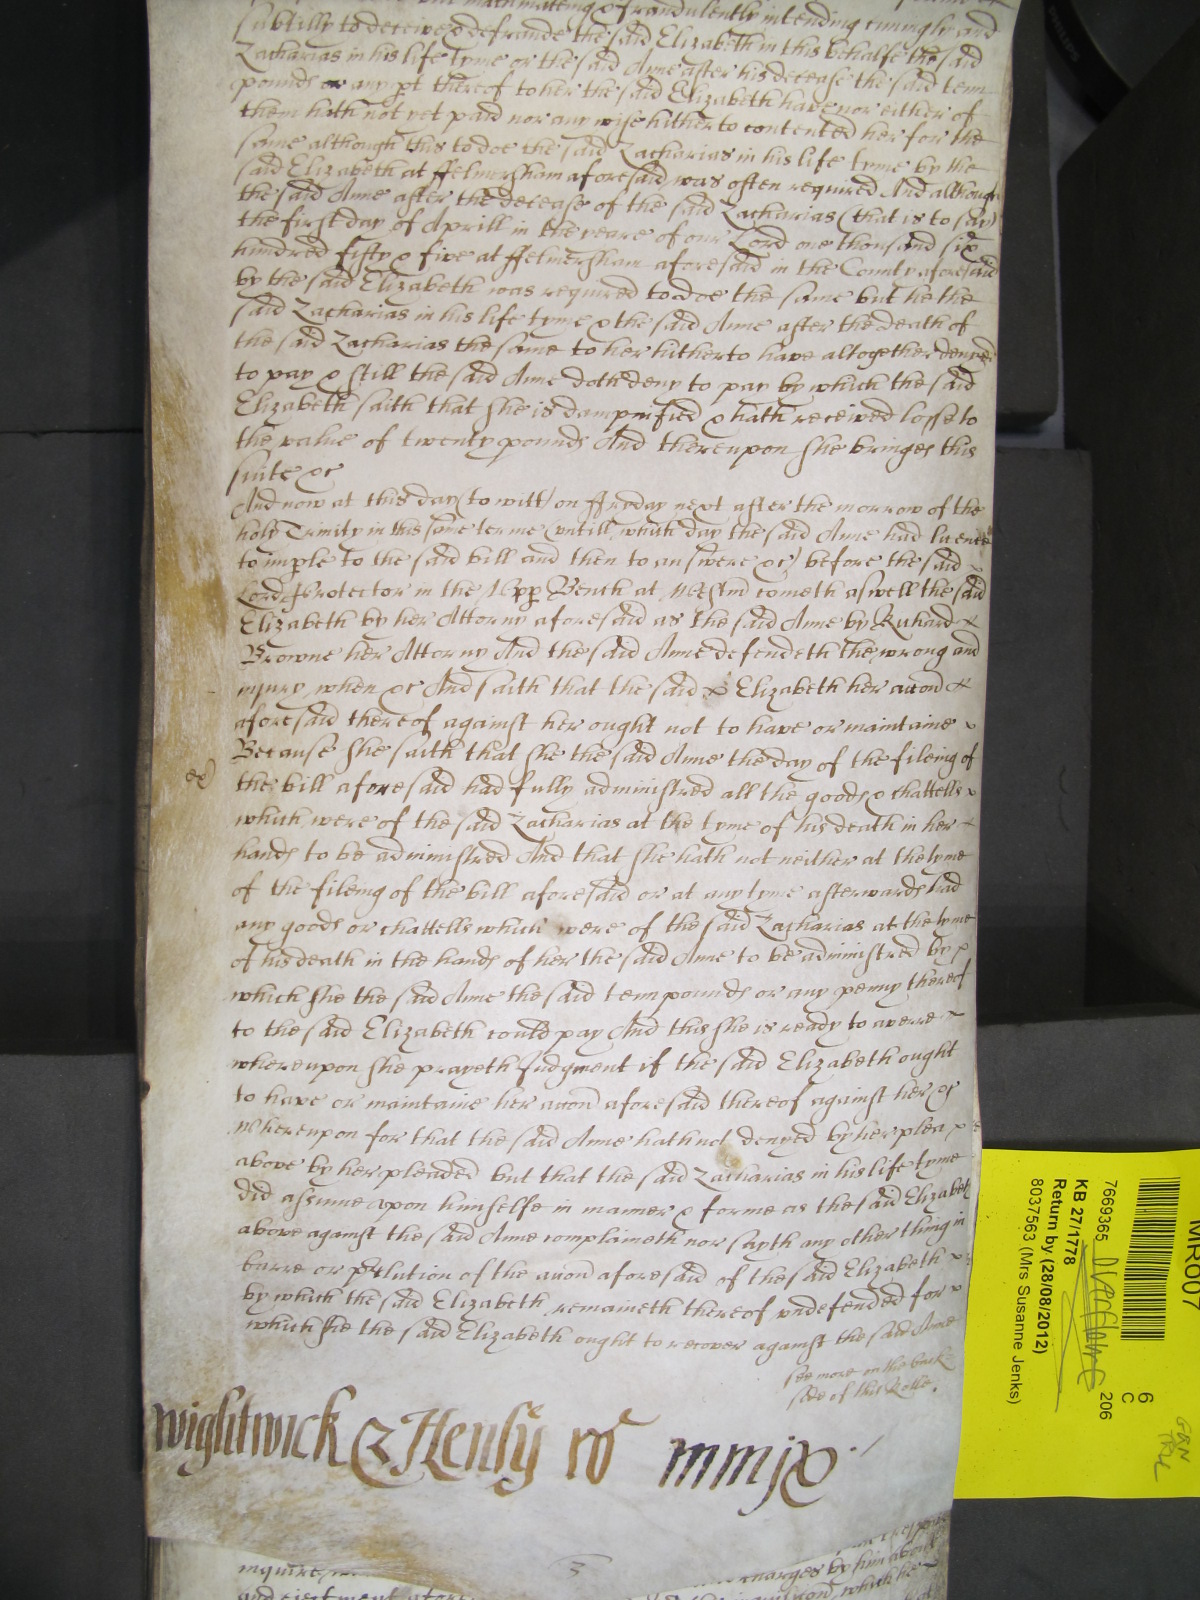 machinating & fraudulently intending cuningly and
subtilly to deceive & defraude the said Elizabeth in this behalfe the said
Zacharias in his life tyme or the said Anne after his decease the said tenn
pounds or any pt thereof to her the said Elizabeth have nor either of
them hath not yet paid nor any wise hitherto contented her for the
same although this to doe the said Zacharias in his life tyme by the
said Elizabeth at ffelmersham aforesaid was often required And although
the said Anne after the decease of the said Zacharias (that is to say)
the first day of Aprill in the yeare of our Lord one thousand six
hundred fifty & five at ffelmersham aforesaid in the County aforesaid
by the said Elizabeth was required to doe the same but he the
said Zacharias in his life tyme & the said Anne after the death of
the said Zacharias the same to her hitherto have altogether denyed
to pay & still the said Anne doth deny to pay by which the said
Elizabeth saith that she is dampnified & hath received losse to
the value of twenty pounds And thereupon she bringes this
suite &c
And now at this day (to witt) on ffryday next after the morrow of the
holy Trinity in this same terme (untill which day the said Anne had licence
to imple to the said bill and then to answere &c) before the said
Lord Protector in the Upp Bench at Westm cometh aswell the said
Elizabeth by her Attorny aforesaid as the said Anne by Richard
Browne her Attorny And the said Anne defendeth the wrong and
injury when &c And saith that the said Elizabeth her accon
aforesaid thereof against her ought not to have or maintaine
Because she saith that she the said Anne the day of the fileing of
the bill aforesaid had fully administred all the goods & chattells
which were of the said Zacharias at the tyme of his death in her
hands to be administred And that she hath not neither at the tyme
of the fileing of the bill aforesaid or at any tyme afterwards had
any goods or chattells which were of the said Zacharias at the tyme
of his death in the hands of her the said Anne to be administred by
which she the said Anne the said tenn pounds or any penny thereof
to the said Elizabeth could pay And this she is ready to averre
whereupon she prayeth Judgment if the said Elizabeth ought
to have or maintaine her accon aforesaid thereof against her &c
Whereupon for that the said Anne hath not denyed by her plea
above by her pleaded but that the said Zacharias in his life tyme
did assume upon himselfe in manner & forme as the said Elizabeth
above against the said Anne complaineth nor sayth any other thing in
barre or p̄clution of the accon aforesaid of the said Elizabeth
by which the said Elizabeth remaineth thereof undefended for
which she the said Elizabeth ought to recover against the said Anne
see more on the back
side of this Rolle.
Wightwick & Henly ro mmjx
inquire
charges by him about
and ejectment afore
which he
MR007
6
C
206
7669365
KB 27/1778
Return by (28/08/2012)
8037563 (Mrs Susanne Jenks)